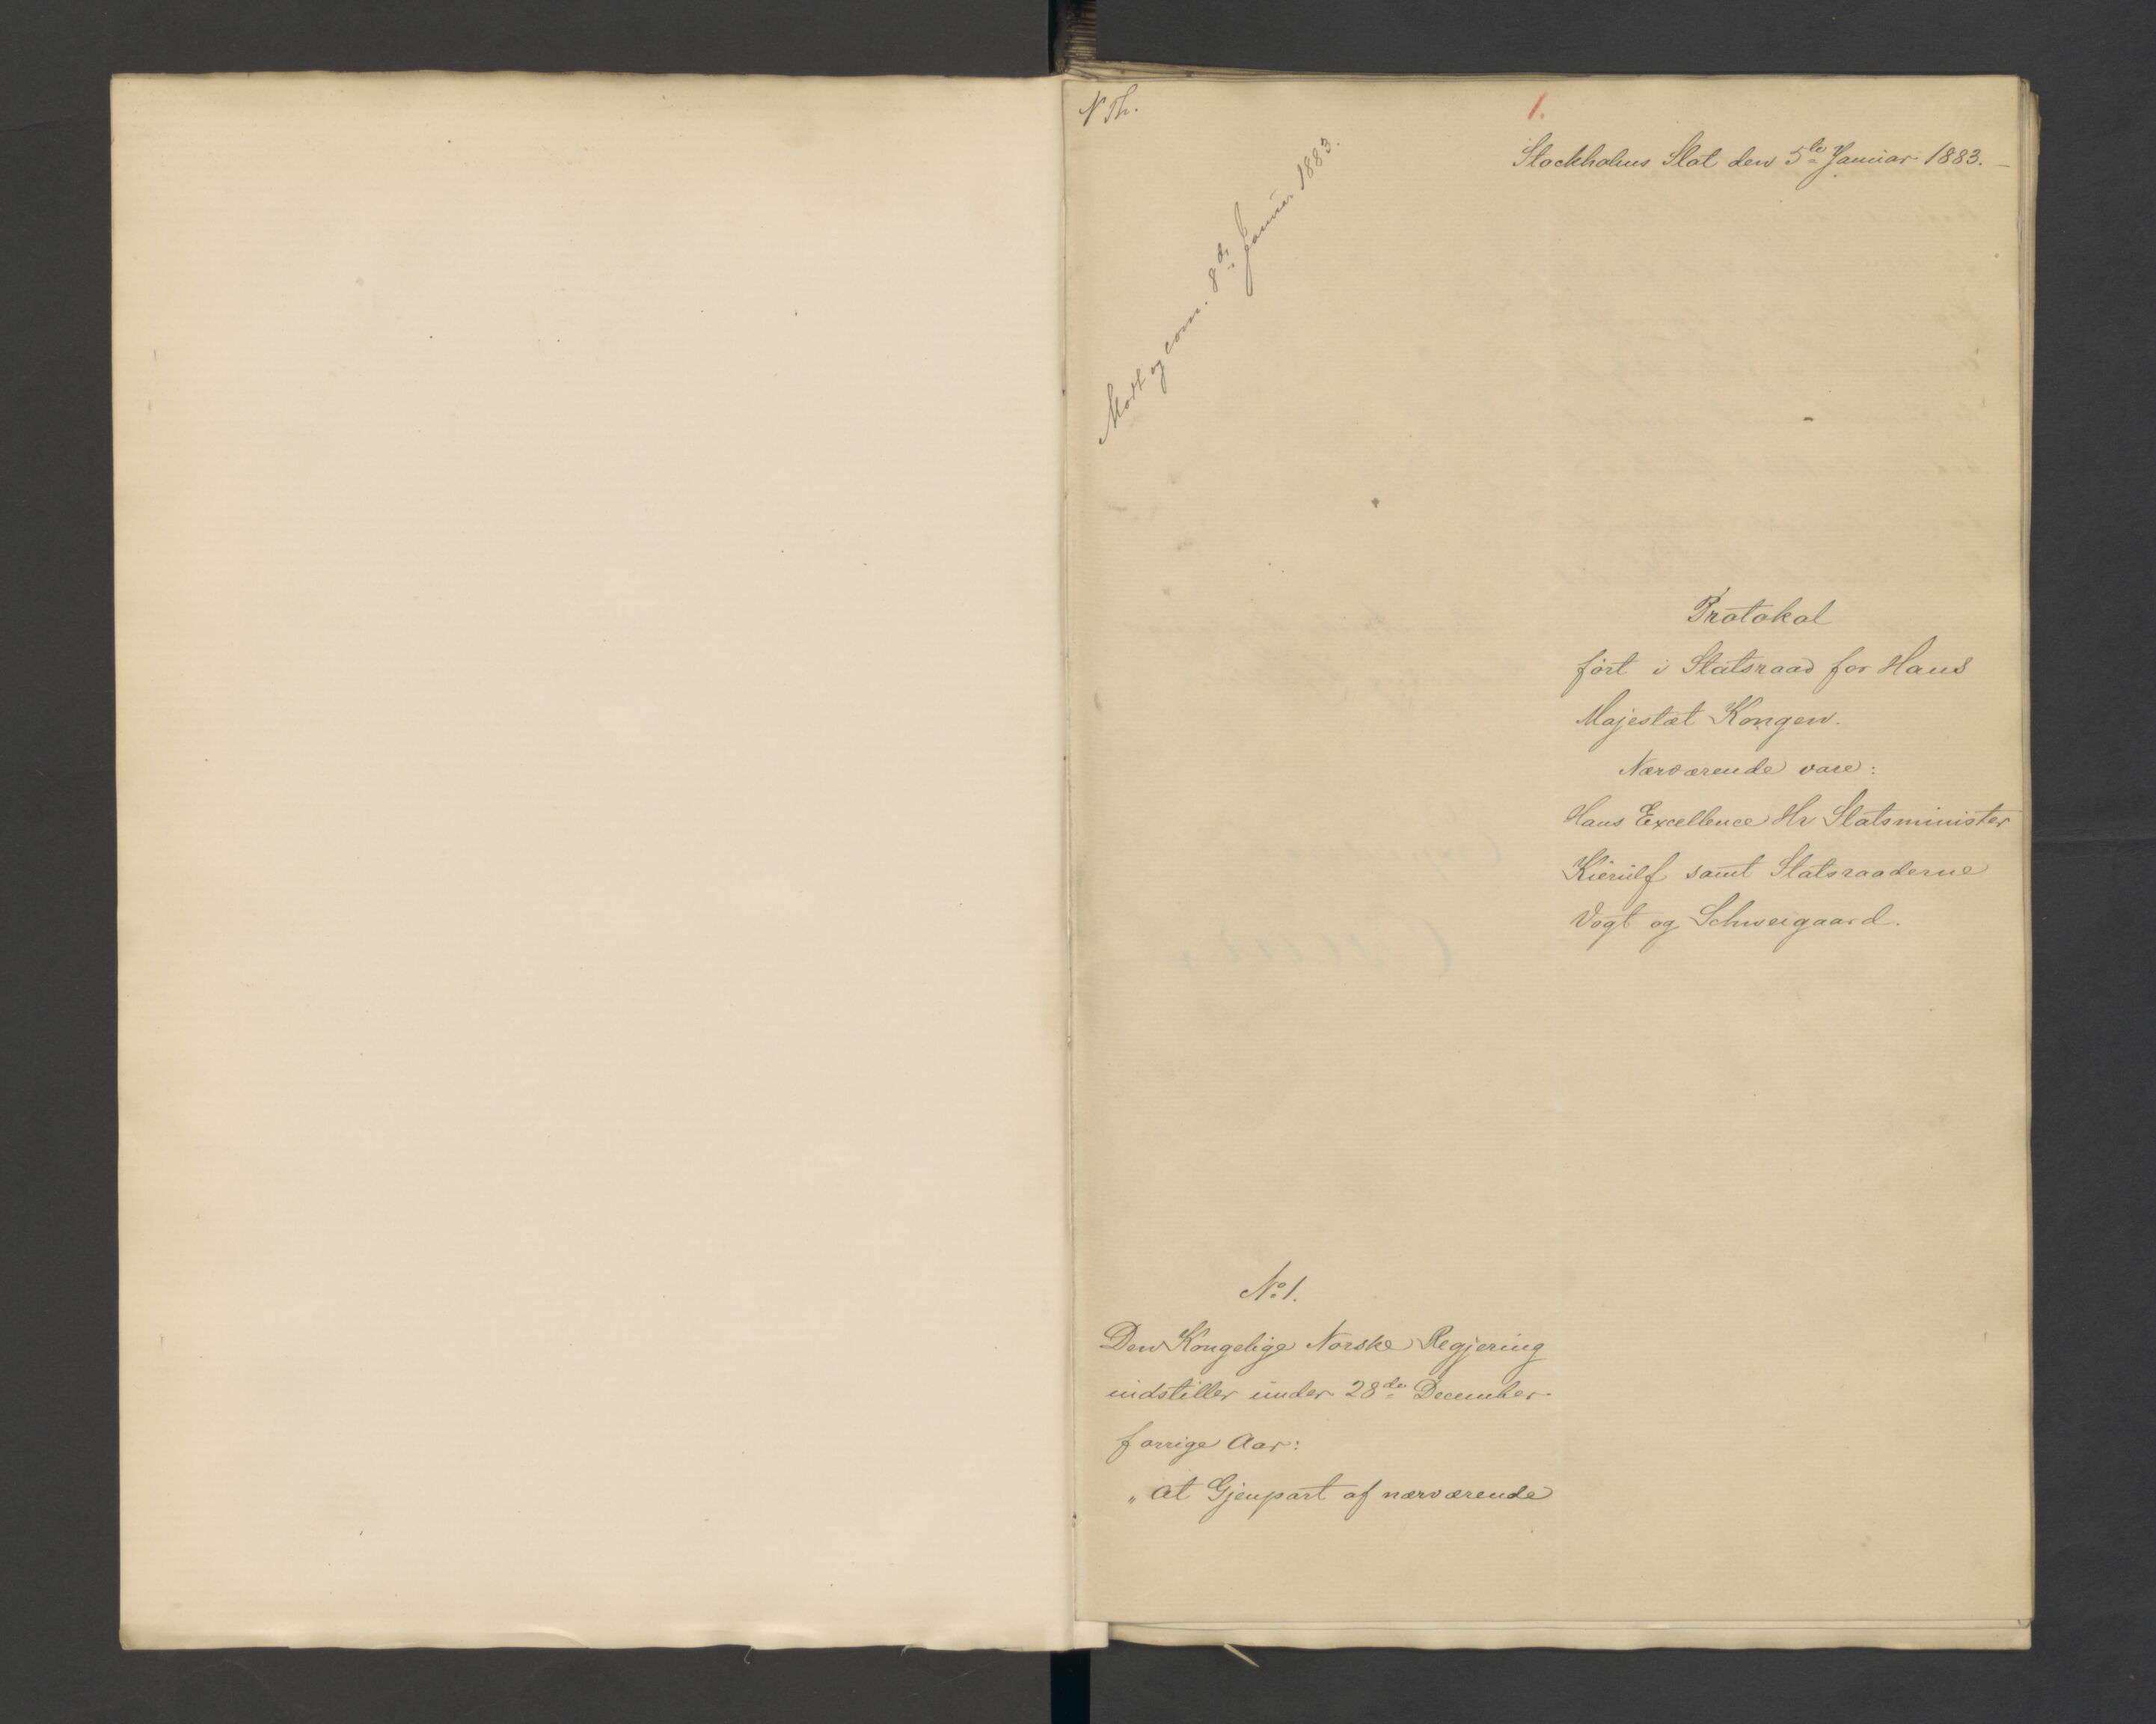 N Th.
1.
Stockholms Slot den 5te Januar 1883. –
Modt og conc. 8de Januar 1883.
Protokol
ført i Statsraad for Hans
Majestæt Kongen.
Nærværende vare:
Hans Excellence Hr Statsminister
Kierulf samt Statsraaderne
Vogt og Schweigaard.
No 1.
Den Kongelige Norske Regjering
indstiller under 28de December
forrige Aar:
„ at Gjenpart af nærværende